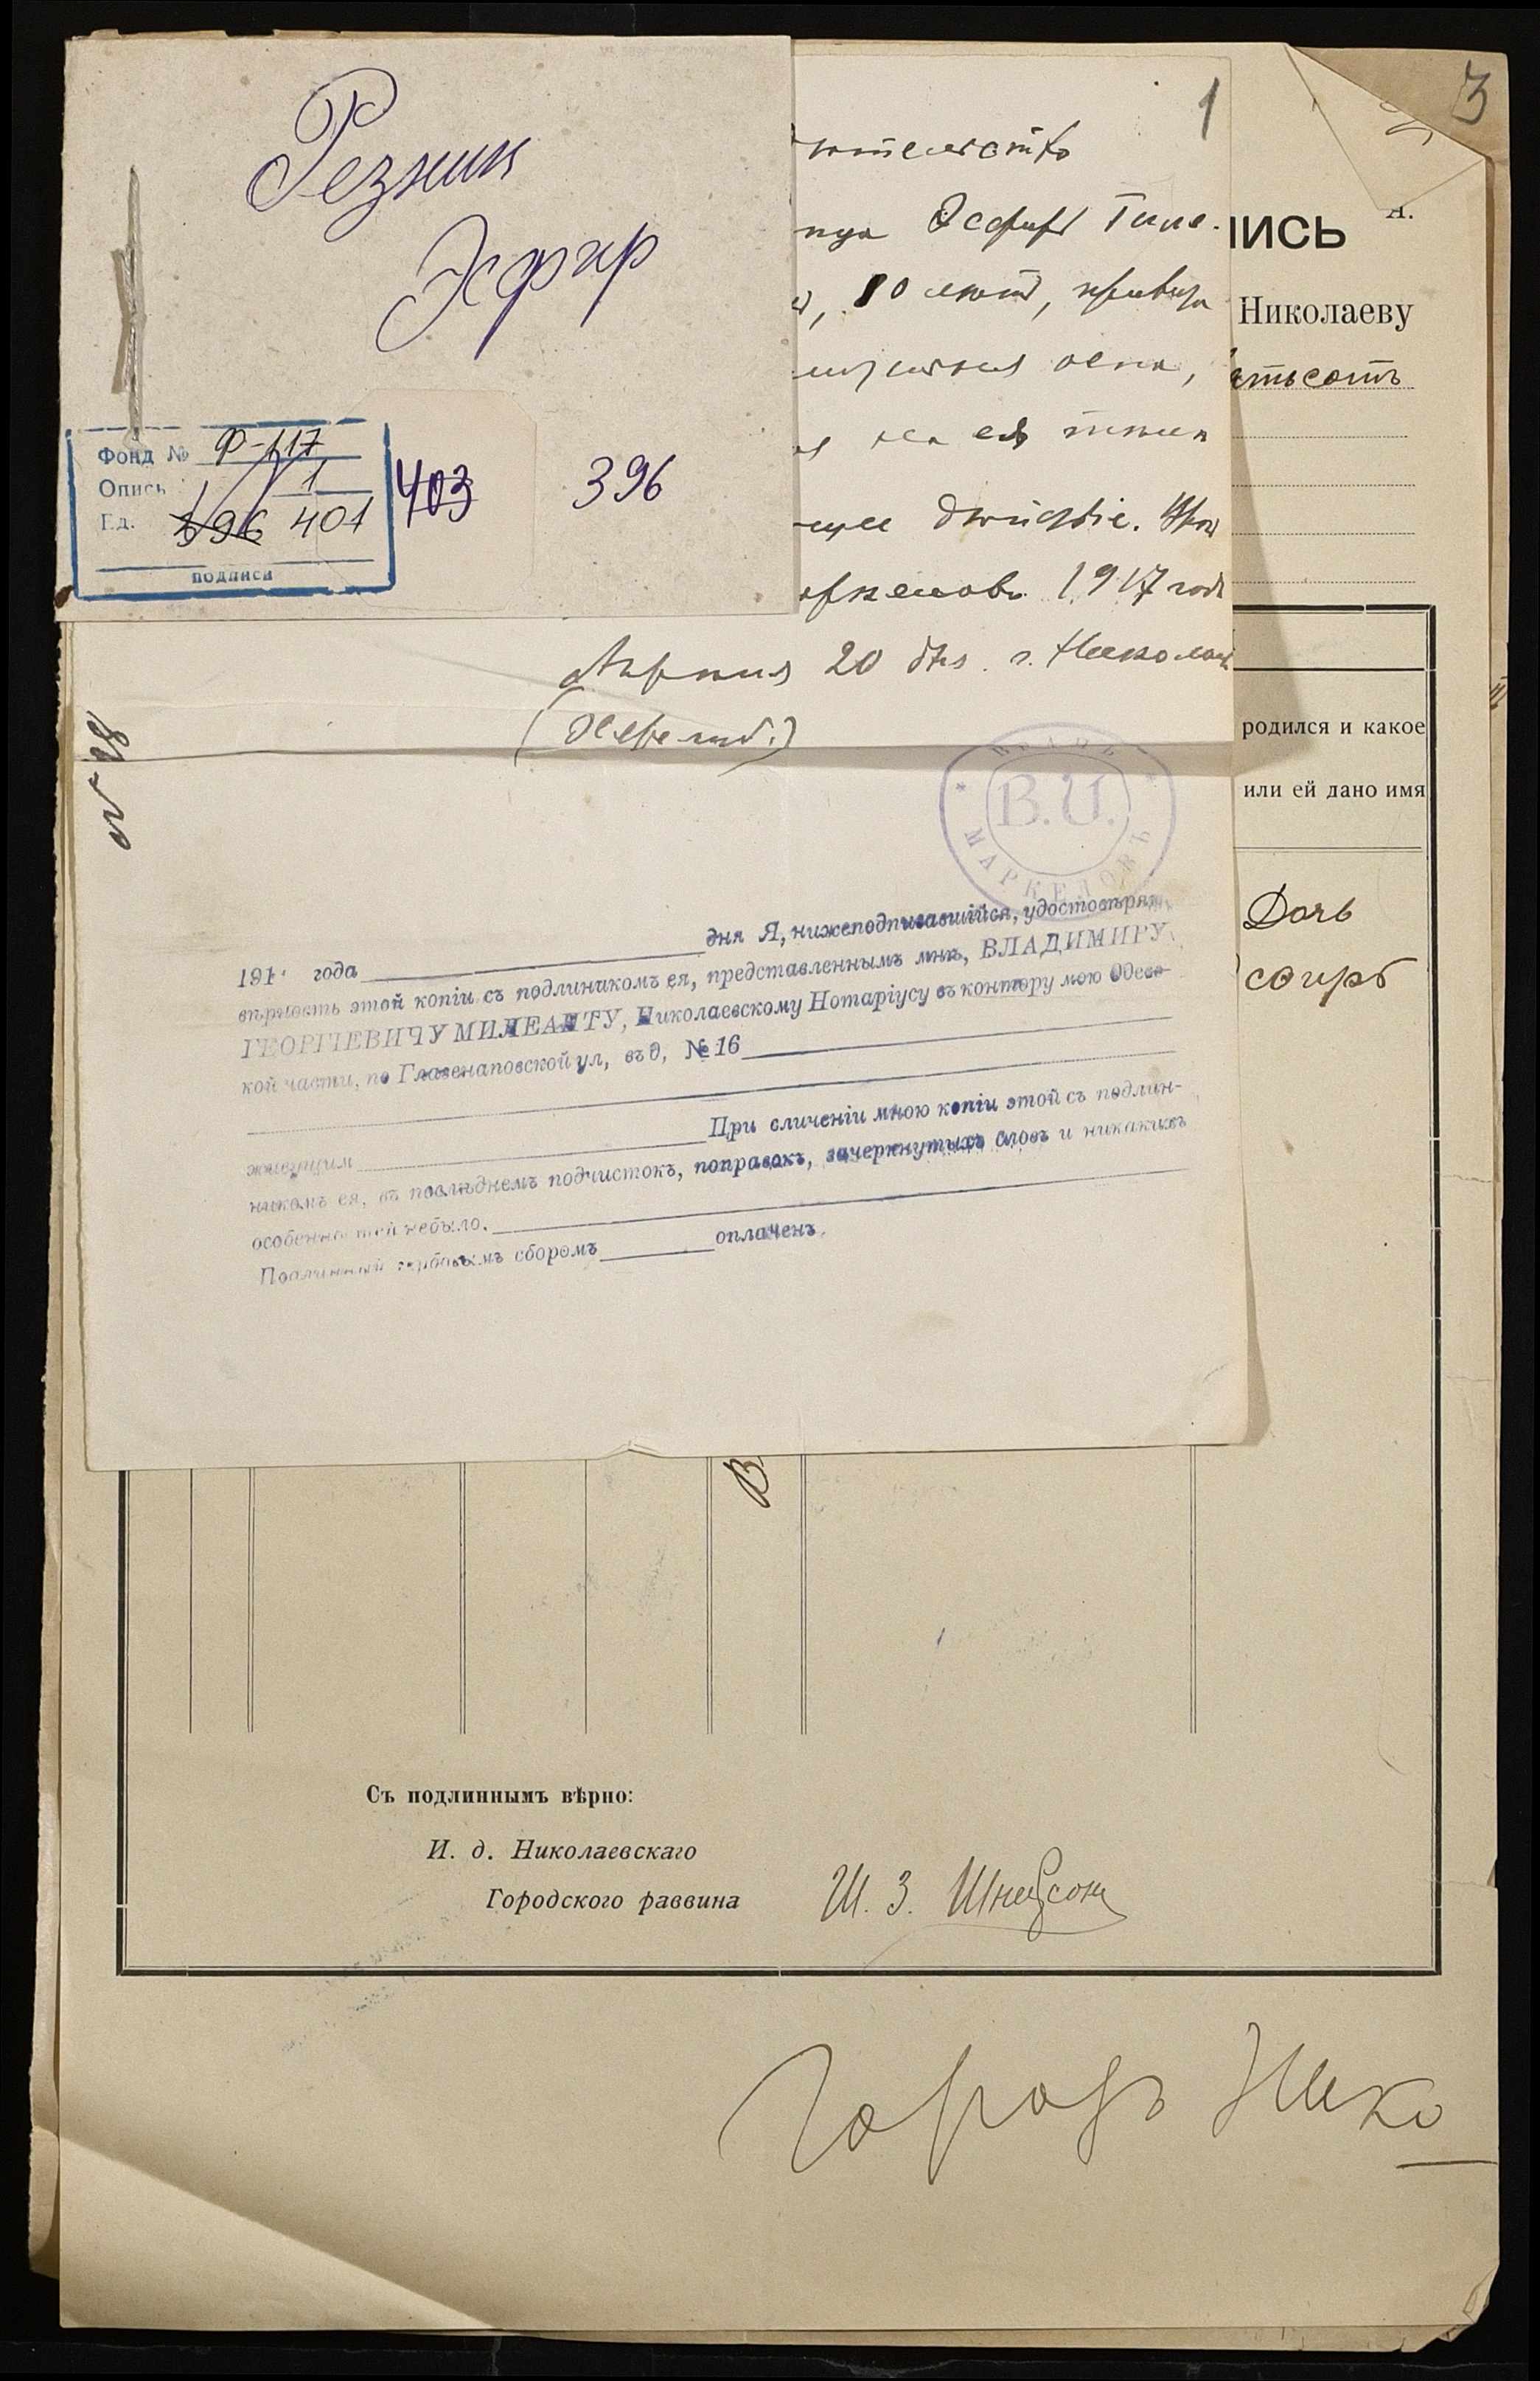 Резник
Эсфир
Фонд № Ф-117
Опись 1
Ед. 396 401
подписи
403
396
1
3
Эсфирь Гиле-
10 летъ, привита
оспа,
на ея
дѣйствіе. Врач
1917 года
Апрѣля 20 дня. г. Николаев
В.И.
МАРКЕЛОВЪ
191 года дня Я, нижеподписавшійся, удостовѣряю
вѣрность этой копіи съ подлинникомъ ея, представленнымъ мнѣ, ВЛАДИМИРУ
ГЕОРГІЕВИЧУ МИЛЕАНТУ, Николаевскому Нотаріусу въ контору мою Одесс-
кой части, по Глазенаповской ул, въ д, № 16
живущим
При сличеніи мною копіи этой съ подлин-
никомъ ея, въ послѣднемъ подчистокъ, поправокъ, зачеркнутыхъ словъ и никакихъ
особенностей небыло.
Подлинный гербовымъ сборомъ оплаченъ.
ПИСЬ
Николаеву
родился и какое
или ей дано имя
Дочь
В
Съ подлиннымъ вѣрно:
И. д. Николаевскаго
Городского раввина
Ш. З. Шнеерсон
Городъ Нико